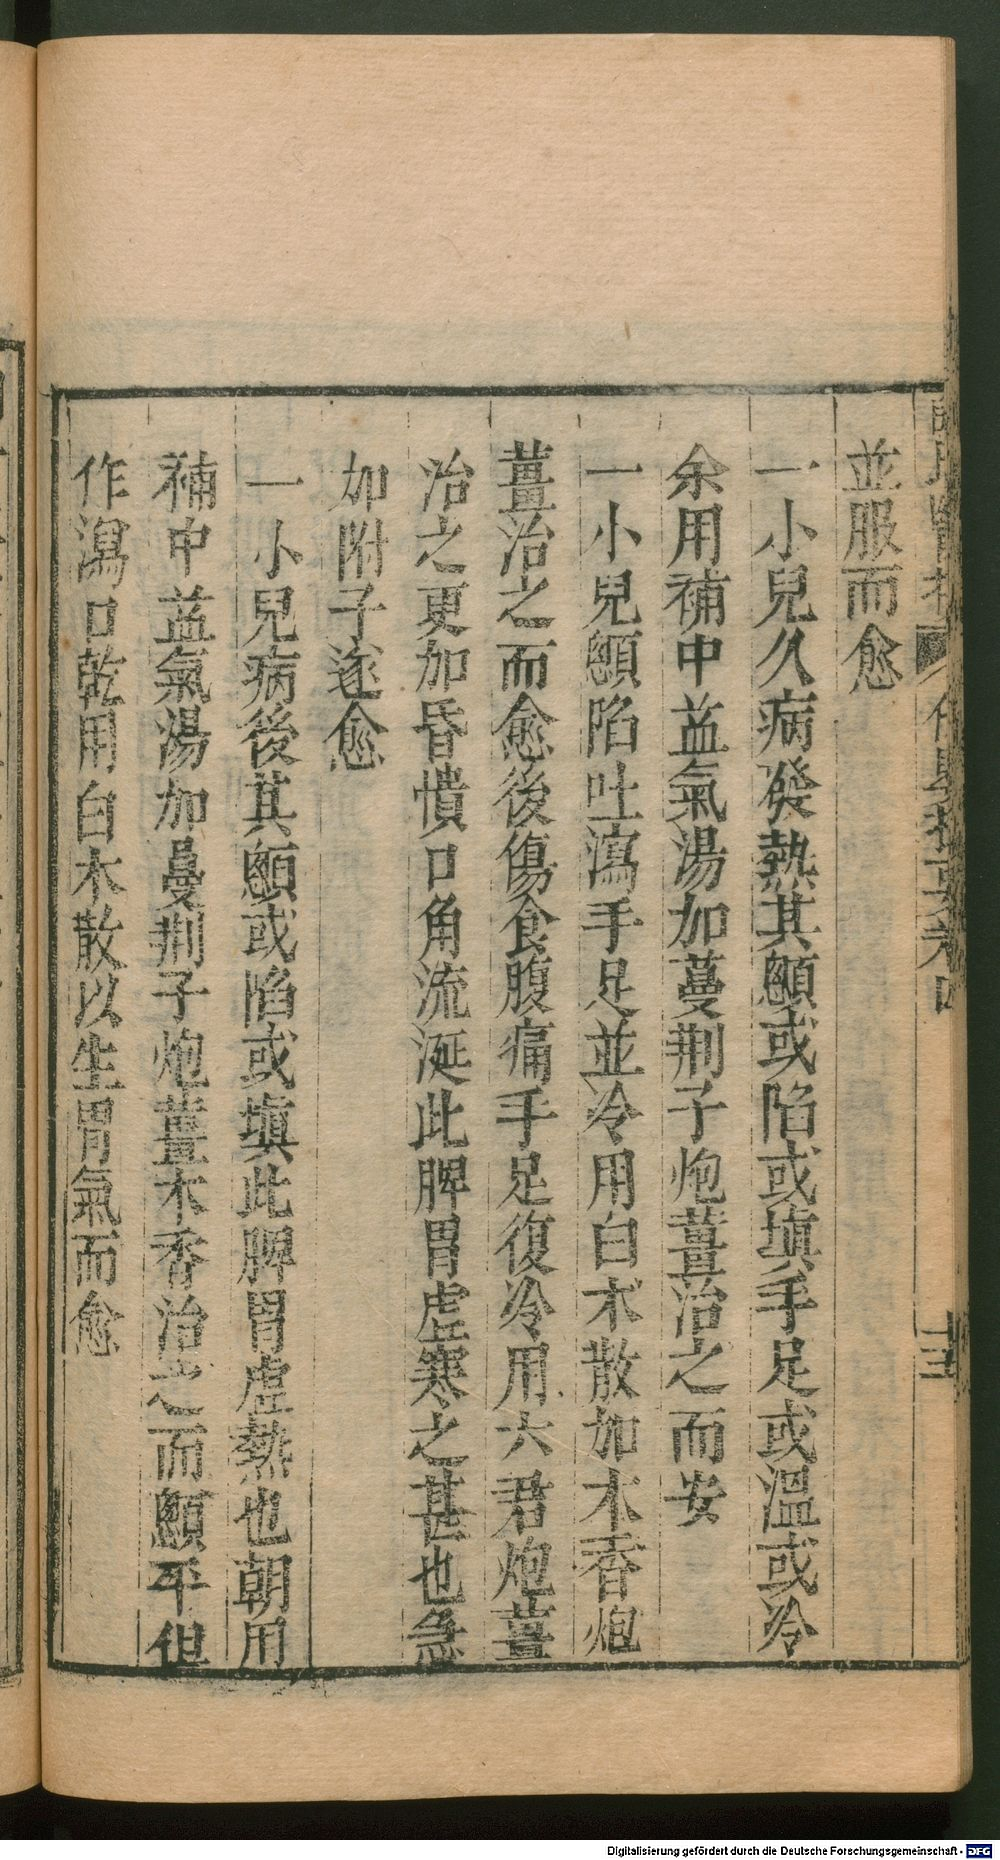 並服而愈
一小兒久病發熱其顖或陷或填手足或溫或冷
余用補中益氣湯加蔓荆子炮薑治之而安
一小兒顖陷吐瀉手足並冷用白朮散加木香炮
薑治之而愈後傷食腹痛手足復冷用六君炮薑
治之更加昏憒口角流涎此脾胃虛寒之甚也急
加附子遂愈
一小兒病後其顖或陷或填此脾胃虛熱也朝用
補中益氣湯加蔓荆子炮薑木香治之而顖平但
作瀉口乾用白朮散以生胃氣而愈
Digitalisierung gefördert durch die Deutsche Forschungsgemeinschaft - DFG